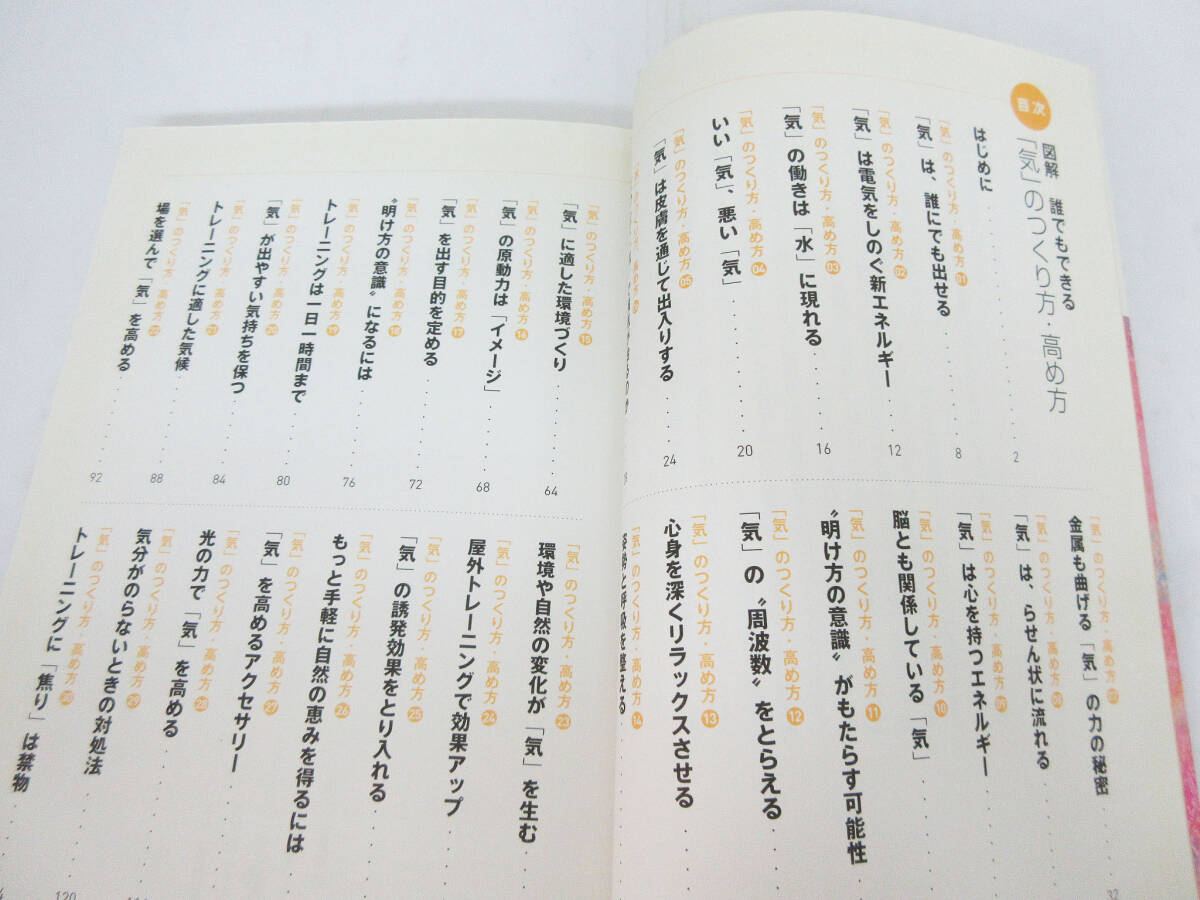 目次
図解 誰でもできる
「気」のつくり方・高め方
はじめに
2
「気」のつくり方・高め方 01
「気」は、誰にでも出せる
8
「気」のつくり方・高め方 02
「気」は電気をしのぐ新エネルギー
12
「気」のつくり方・高め方 03
「気」の働きは「水」に現れる
16
「気」のつくり方・高め方 04
いい「気」、悪い「気」
20
「気」のつくり方・高め方 05
「気」は皮膚を通じて出入りする
24
「気」のつくり方・高め方 07
金属も曲げる「気」の力の秘密
32
「気」のつくり方・高め方 08
「気」は、らせん状に流れる
「気」のつくり方・高め方 09
「気」は心を持つエネルギー
「気」のつくり方・高め方 10
脳とも関係している「気」
「気」のつくり方・高め方 11
〝明け方の意識〟がもたらす可能性
「気」のつくり方・高め方 12
「気」の〝周波数〟をとらえる
「気」のつくり方・高め方 13
心身を深くリラックスさせる
「気」のつくり方・高め方 14
姿勢と呼吸を整える
「気」のつくり方・高め方 15
「気」に適した環境づくり
64
「気」のつくり方・高め方 16
「気」の原動力は「イメージ」
68
「気」のつくり方・高め方 17
「気」を出す目的を定める
72
「気」のつくり方・高め方 18
〝明け方の意識〟になるには
76
「気」のつくり方・高め方 19
トレーニングは一日一時間まで
80
「気」のつくり方・高め方 20
「気」が出やすい気持ちを保つ
84
「気」のつくり方・高め方 21
トレーニングに適した気候
88
「気」のつくり方・高め方 22
場を選んで「気」を高める
92
「気」のつくり方・高め方 23
環境や自然の変化が「気」を生む
「気」のつくり方・高め方 24
屋外トレーニングで効果アップ
「気」のつくり方・高め方 25
「気」の誘発効果をとり入れる
「気」のつくり方・高め方 26
もっと手軽に自然の恵みを得るには
「気」のつくり方・高め方 27
「気」を高めるアクセサリー
「気」のつくり方・高め方 28
光の力で「気」を高める
「気」のつくり方・高め方 29
気分がのらないときの対処法
120
「気」のつくり方・高め方 30
トレーニングに「焦り」は禁物